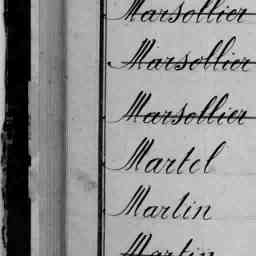 Marsollier
Marsollier
Marsollier
Martel
Martin
Martin